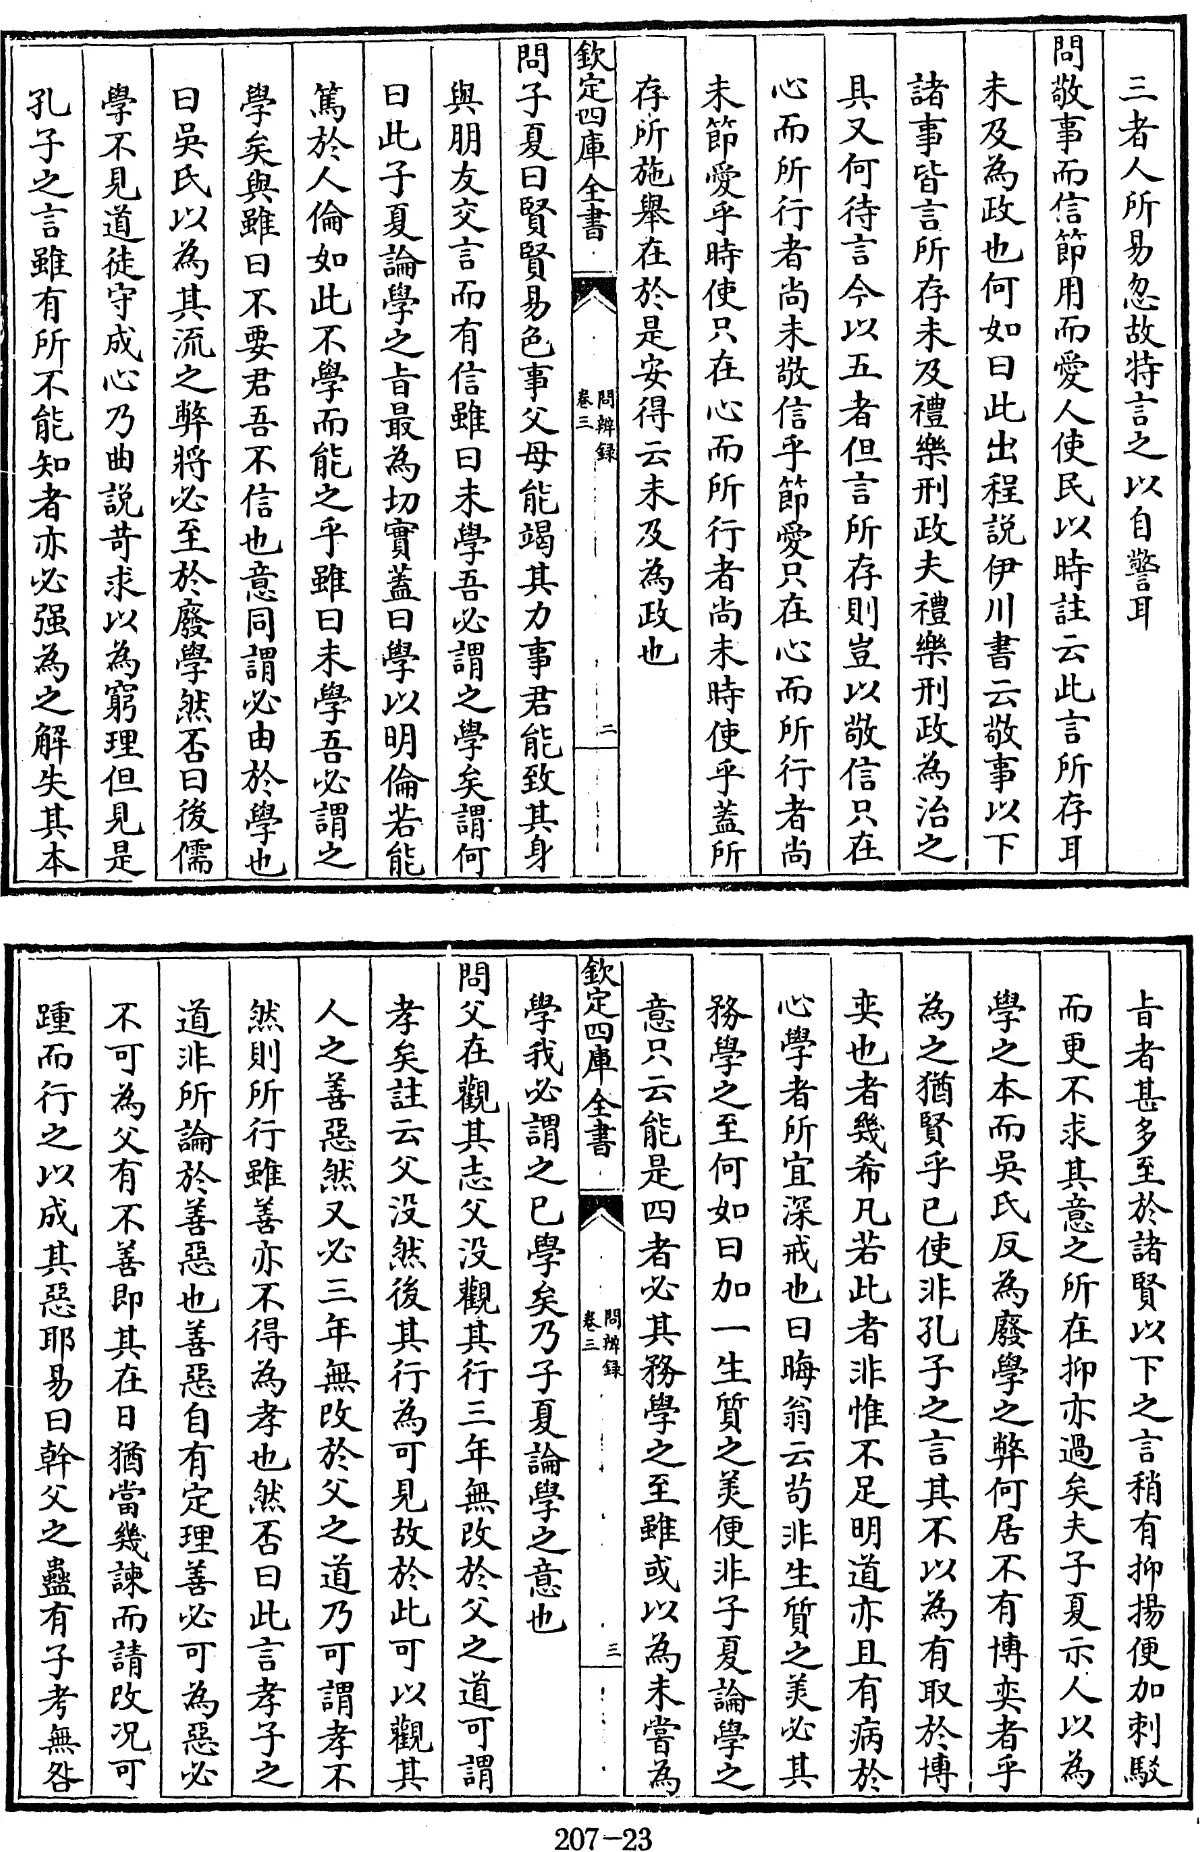 三者人所易忽故特言之以自警耳
問敬事而信節用而愛人使民以時註云此言所存耳
未及為政也何如曰此出程説伊川書云敬事以下
諸事皆言所存未及禮樂刑政夫禮樂刑政為治之
具又何待言今以五者但言所存則豈以敬信只在
心而所行者尚未敬信乎節愛只在心而所行者尚
未節愛乎時使只在心而所行者尚未時使乎蓋所
存所施舉在於是安得云未及為政也
欽定四庫全書
問辨録
卷三
二
問子夏曰賢賢易色事父母能竭其力事君能致其身
與朋友交言而有信雖曰未學吾必謂之學矣謂何
曰此子夏論學之旨最為切實蓋曰學以明倫若能
篤於人倫如此不學而能之乎雖曰未學吾必謂之
學矣與雖曰不要君吾不信也意同謂必由於學也
曰吳氏以為其流之弊將必至於廢學然否曰後儒
學不見道徒守成心乃曲説苛求以為窮理但見是
孔子之言雖有所不能知者亦必强為之解失其本
旨者甚多至於諸賢以下之言稍有抑揚便加刺駁
而更不求其意之所在抑亦過矣夫子夏示人以為
學之本而吳氏反為廢學之弊何居不有博奕者乎
為之猶賢乎已使非孔子之言其不以為有取於博
奕也者幾希凡若此者非惟不足明道亦且有病於
心學者所宜深戒也曰晦翁云苟非生質之美必其
務學之至何如曰加一生質之美便非子夏論學之
意只云能是四者必其務學之至雖或以為未嘗為
學我必謂之已學矣乃子夏論學之意也
欽定四庫全書
問辨録
卷三
三
問父在觀其志父没觀其行三年無改於父之道可謂
孝矣註云父没然後其行為可見故於此可以觀其
人之善惡然又必三年無改於父之道乃可謂孝不
然則所行雖善亦不得為孝也然否曰此言孝子之
道非所論於善惡也善惡自有定理善必可為惡必
不可為父有不善即其在日猶當幾諫而請改况可
踵而行之以成其惡耶易曰幹父之蠱有子考無咎
207-23